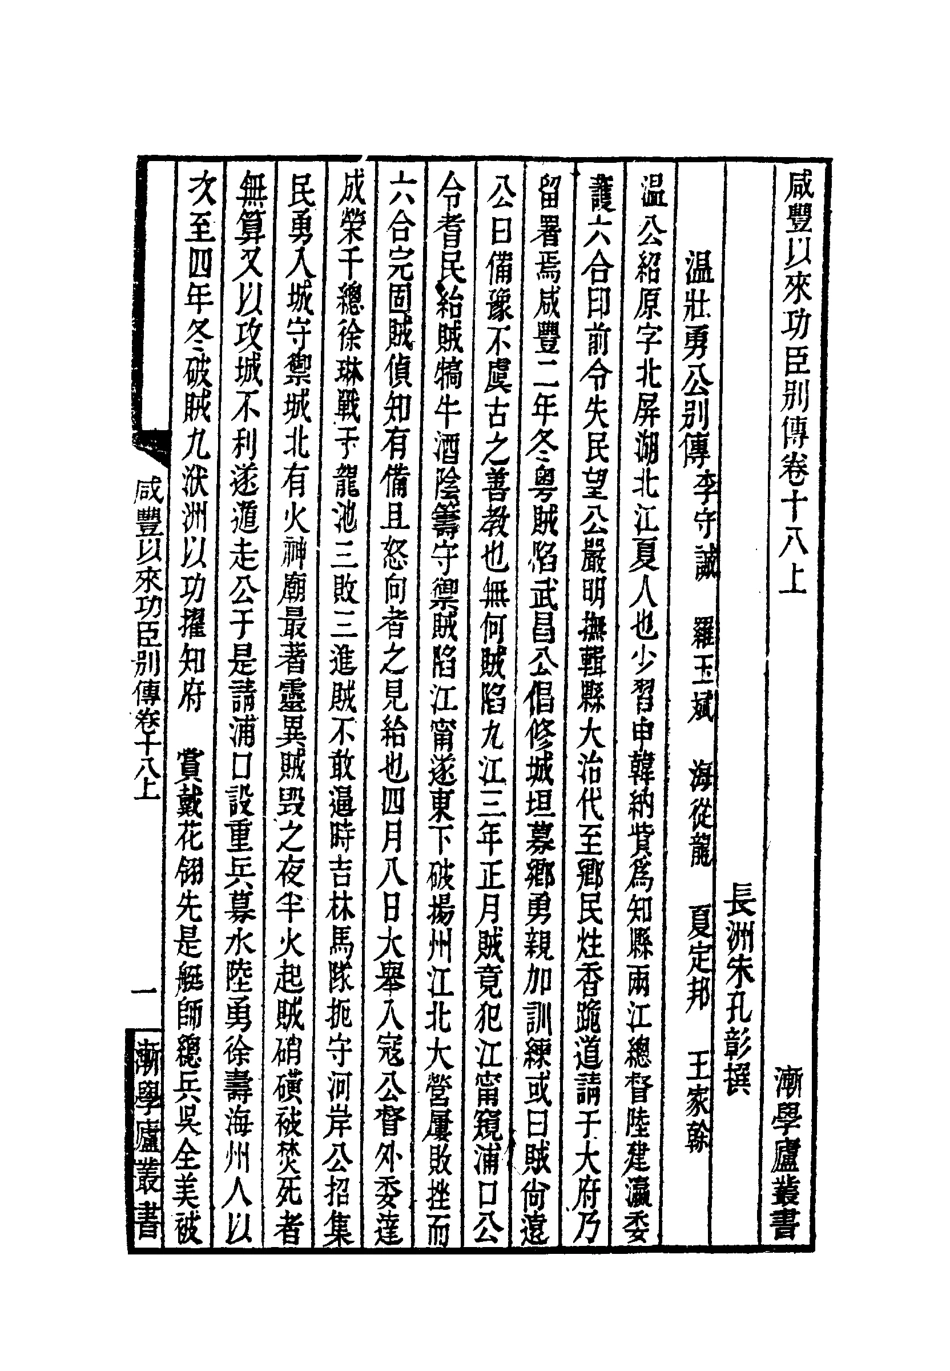 咸豐以來功臣別傳卷十八上　漸學廬叢書
長洲朱孔彰撰
温壯勇公別傳李守誠　羅玉斌　海從龍　夏定邦　王家榦
温公紹原字北屏湖北江夏人也少習申韓納貲爲知縣兩江總督陸建瀛委
護六合印前令失民望公嚴明撫輯縣大治代至鄉民炷香跪道請于大府乃
留署焉咸豐二年冬粵賊陷武昌公倡修城垣募鄉勇親加訓練或曰賊尙遠
公曰備豫不虞古之善教也無何賊陷九江三年正月賊竟犯江甯窺浦口公
令耆民紿賊犒牛酒陰籌守禦賊陷江甯遂東下破揚州江北大營屢敗挫而
六合完固賊偵知有備且怒向者之見紿也四月八日大舉入寇公督外委達
成榮千總徐琳戰于龍池三敗三進賊不敢逼時吉林馬隊扼守河岸公招集
民勇入城守禦城北有火神廟最著靈異賊毀之夜半火起賊硝磺被焚死者
無算又以攻城不利遂遁走公于是請浦口設重兵募水陸勇徐壽海州人以
次至四年冬破賊九洑洲以功擢知府　賞戴花翎先是艇師總兵吳全美被
咸豐以來功臣別傳卷十八上　一　漸學廬叢書